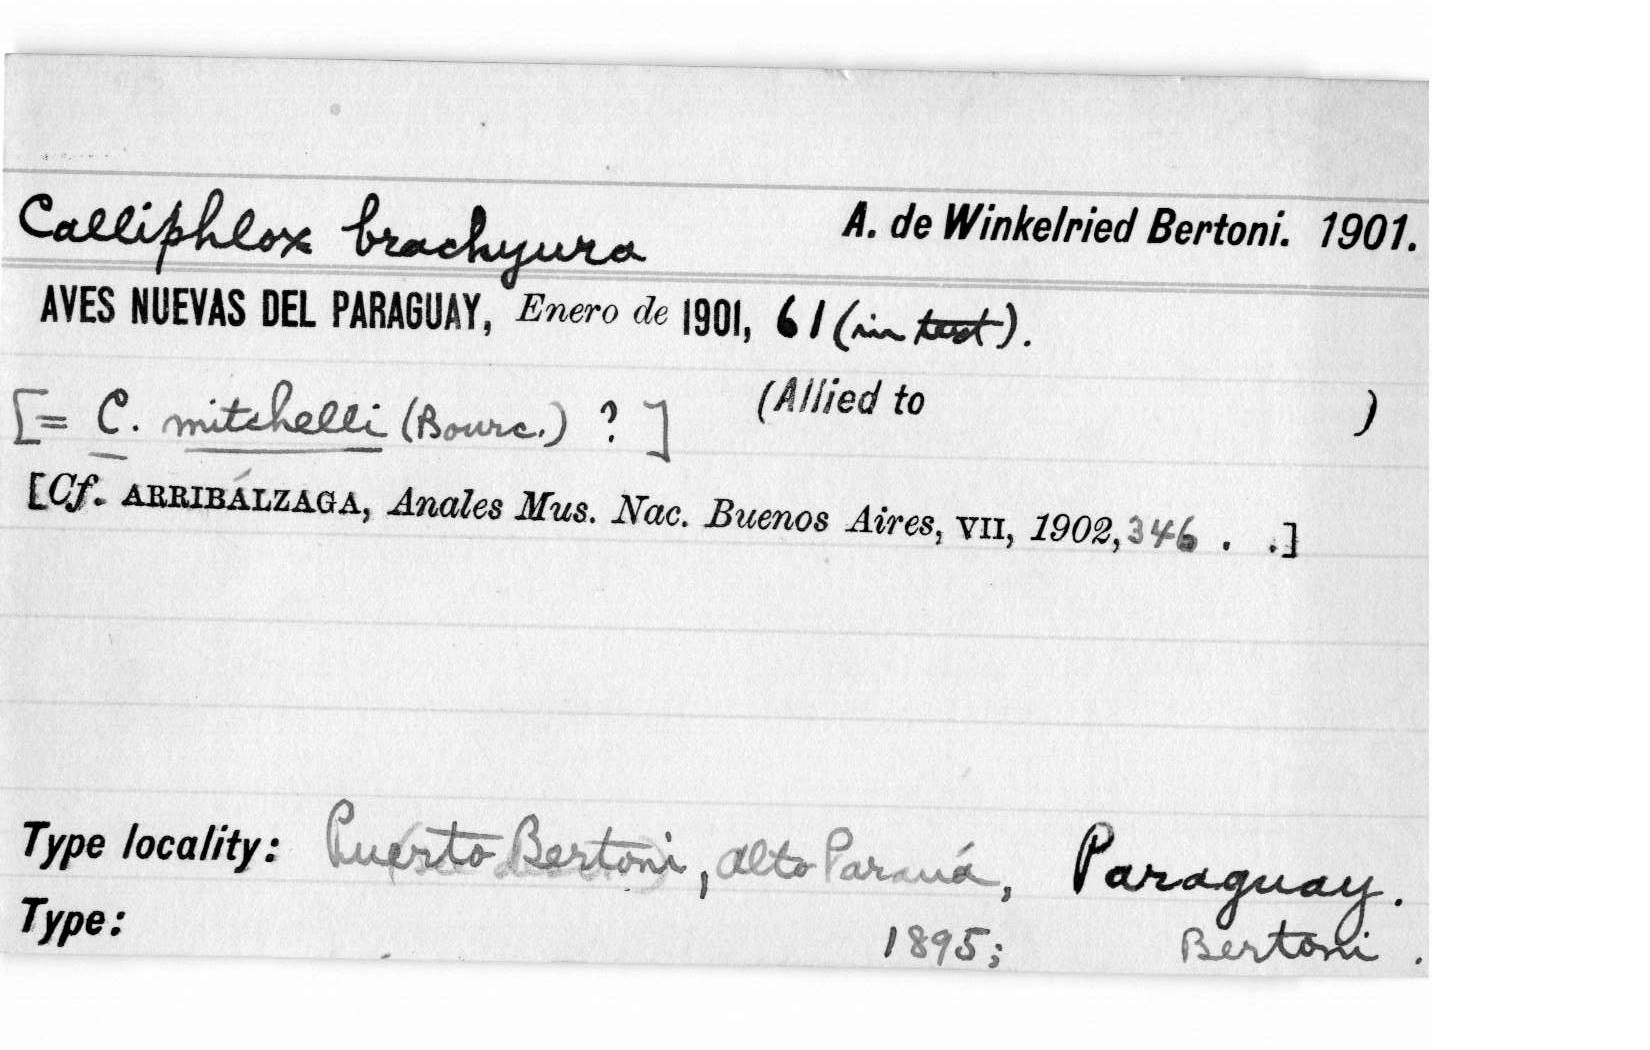 Calliphlox brachyura A. de Winkelried Bertoni. 1901.
AVES NUEVAS DEL PARAGUAY, Enero de 1901, 61 (in text).
[= C. mitchelli (Bourc.) ? ] (Allied to )
[Cf. ARRIBÁLZAGA, Anales Mus. Nac. Buenos Aires, VII, 1902, 346 . .]
Type locality: Puerto Bertoni, alto Paraná, Paraguay.
Type: 1895; Bertoni .